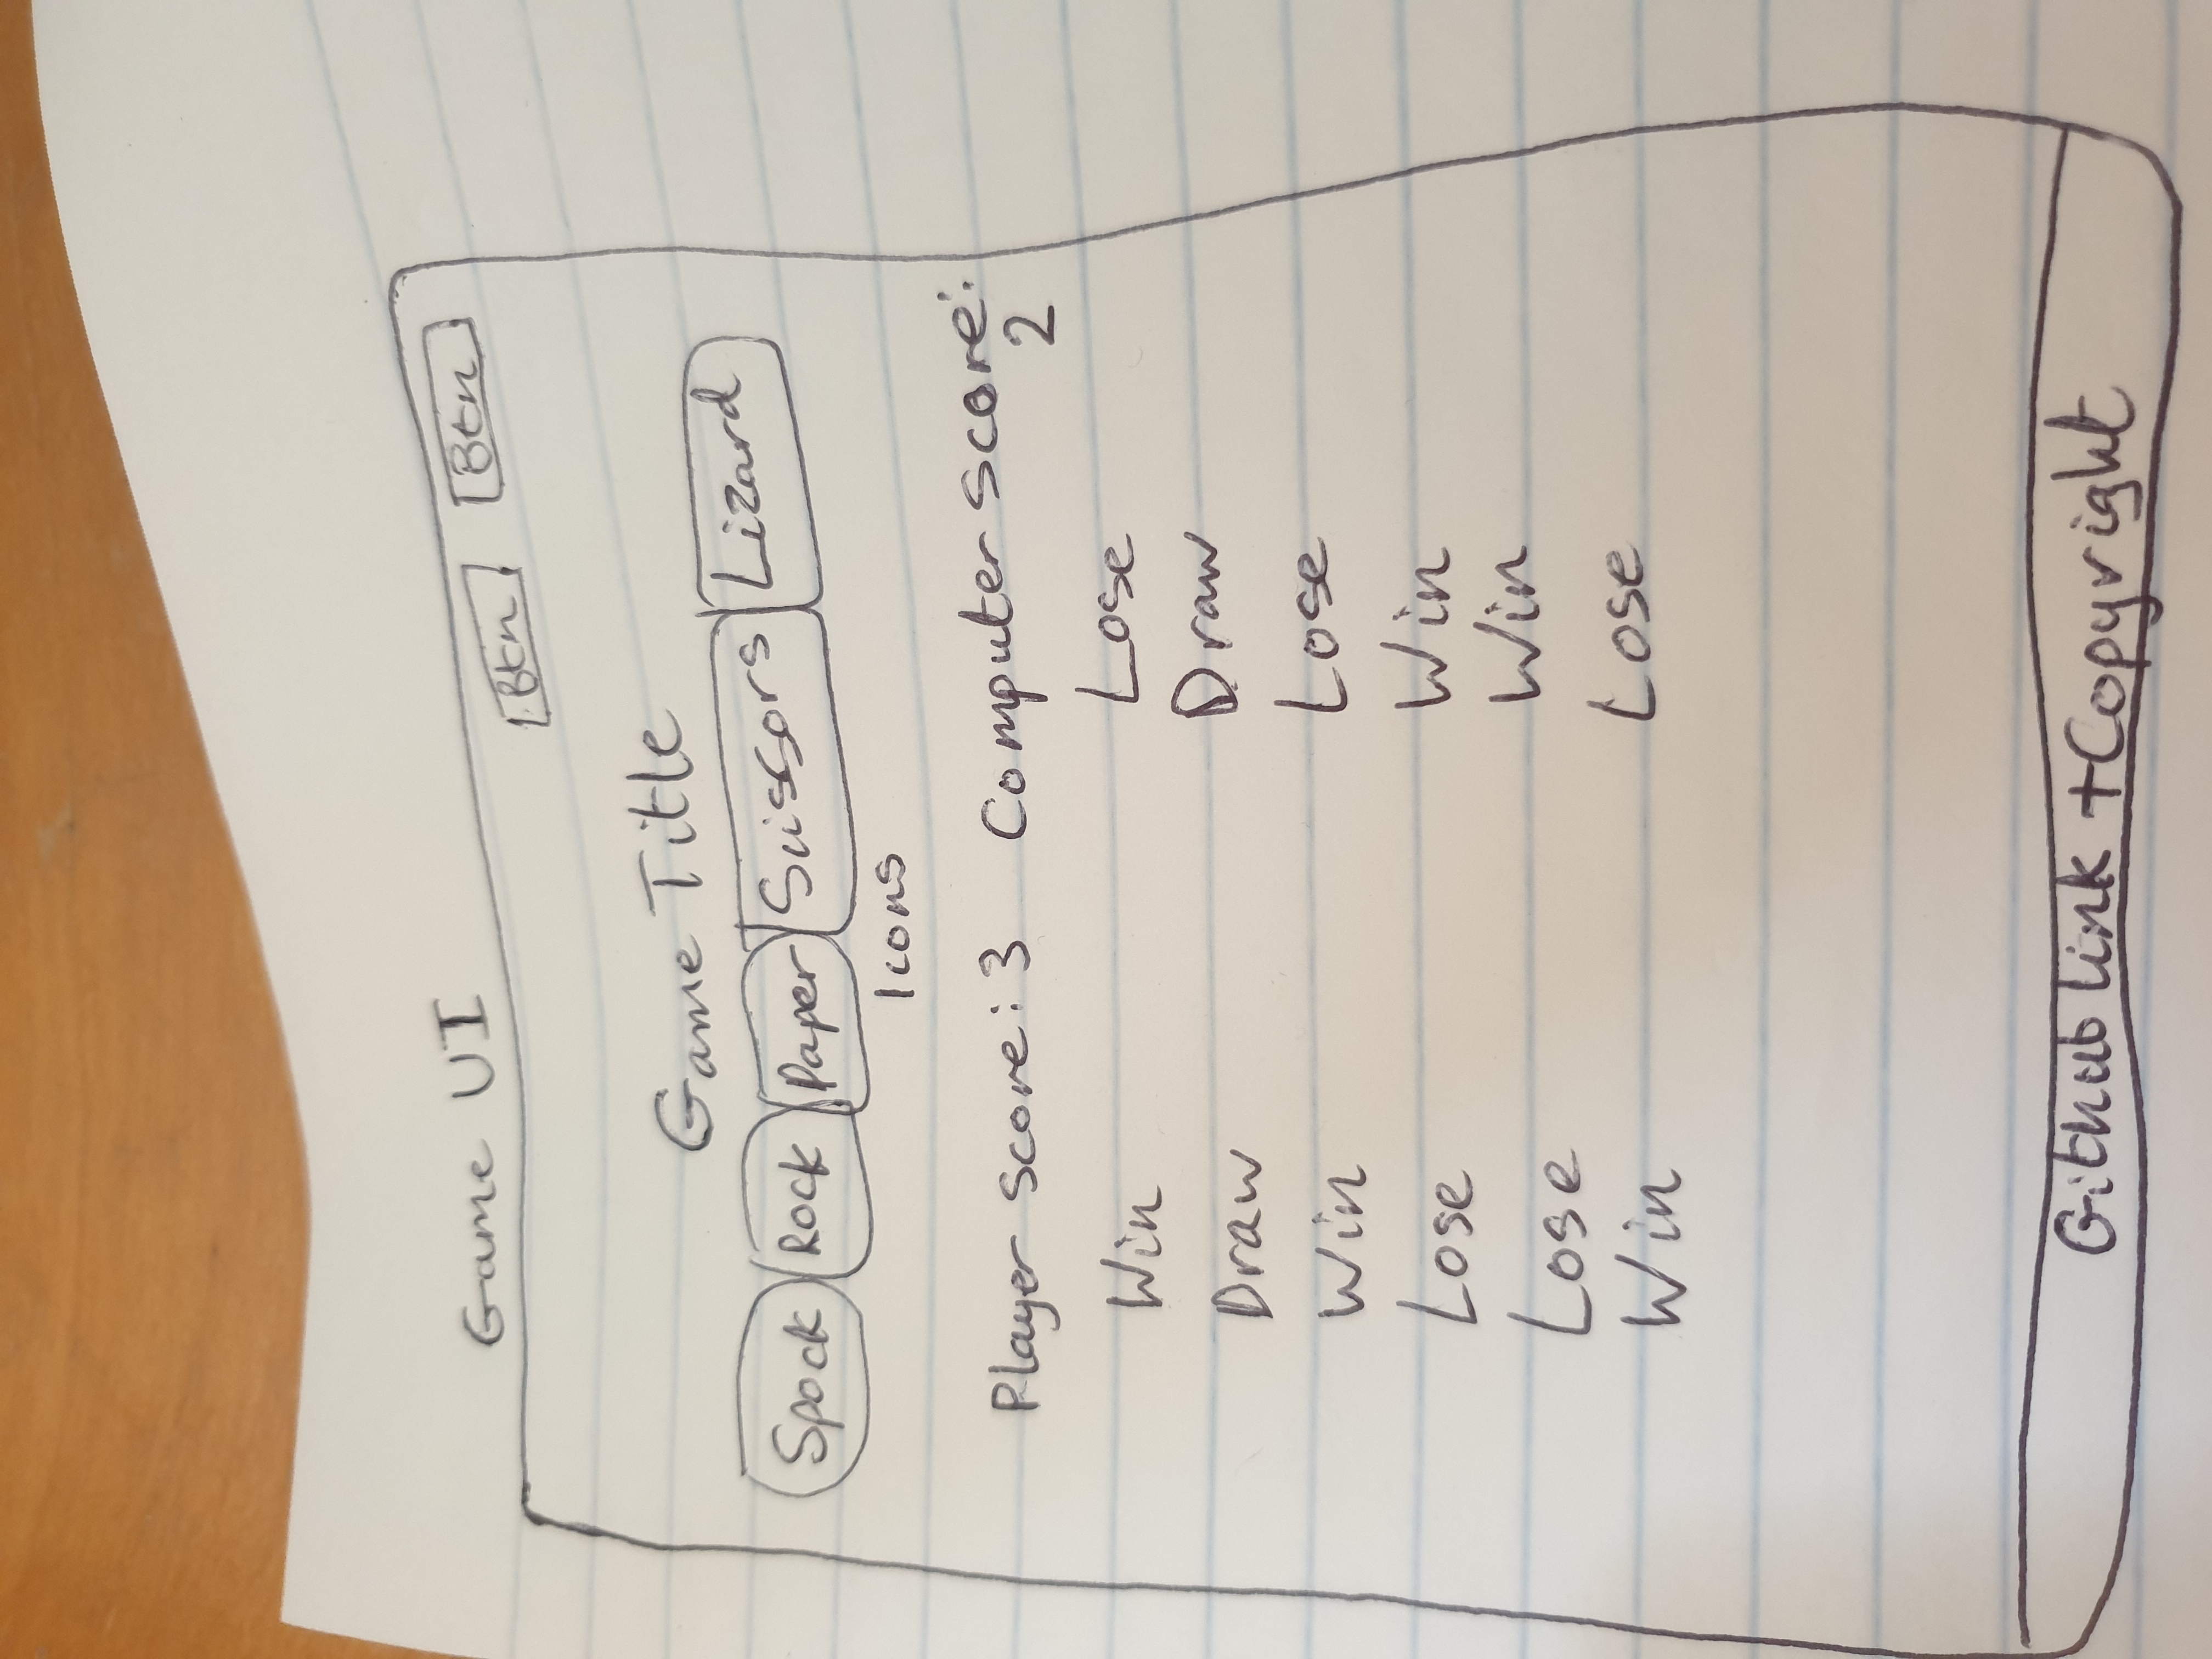 Game UI
Btn Btn
Game Title
Spock Rock Paper Suissors Lizard
Icons
Player score: 3 Computer score:
2
Win Lose
Draw Draw
Win Lose
Lose Win
Lose Win
Win Lose
Github link + Copyright